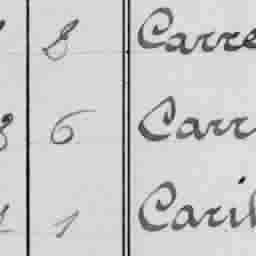 8 Carre
8 6 Carr
1 1 Cari